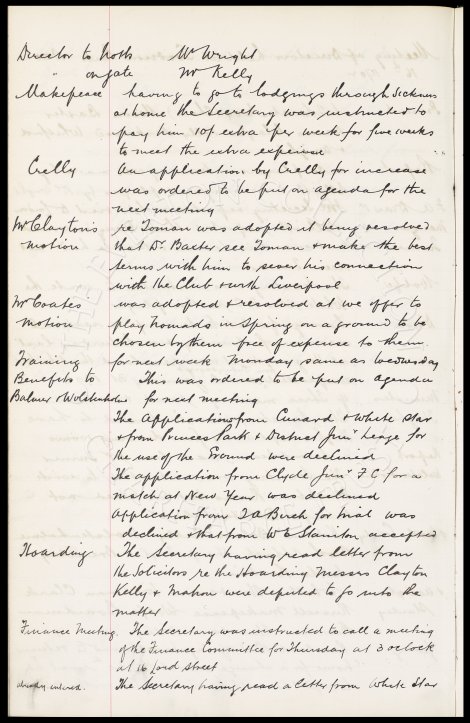 Director to Notts Mr Wright
" on gate Mr Kelly
Makepeace having to go to lodgings through sickness
at home the Secretary was instructed to
pay him 10/ extra per week for five weeks
to meet the extra expense
Crelly An application by Crelly for increase
was ordered to be put on agenda for the
next meeting
Mr Clayton's re Toman was adopted it being resolved
motion that Dr. Baxter see Toman & make the best
terms with him to sever his connection
with the Club & with Liverpool
Mr Coates was adopted & resolved at we offer to
motion play Nomads in Spring on a ground to be
chosen by them free of expense to them.
Training for next week Monday same as Wednesday
Benefits to This was ordered to be put on agenda
Balmer & Wolstenholme for next meeting
The Application from Cunard & White Star
& from Princes Park & District Junr League for
the use of the Ground were declined
The application from Clyde Junr F C for a
match at New Year was declined
Application from J A Birch for trial was
declined & that from W E Staniton accepted
Hoarding The Secretary having read letter from
the Solicitors re the Hoarding Messrs Clayton
Kelly & Mahon were deputed to go into the
matter
Finance Meeting. The Secretary was instructed to call a meeting
of the Finance Committee for Thursday at 3 oclock
at 16 Lord Street
already entered. The Secretary having read a letter from White Star